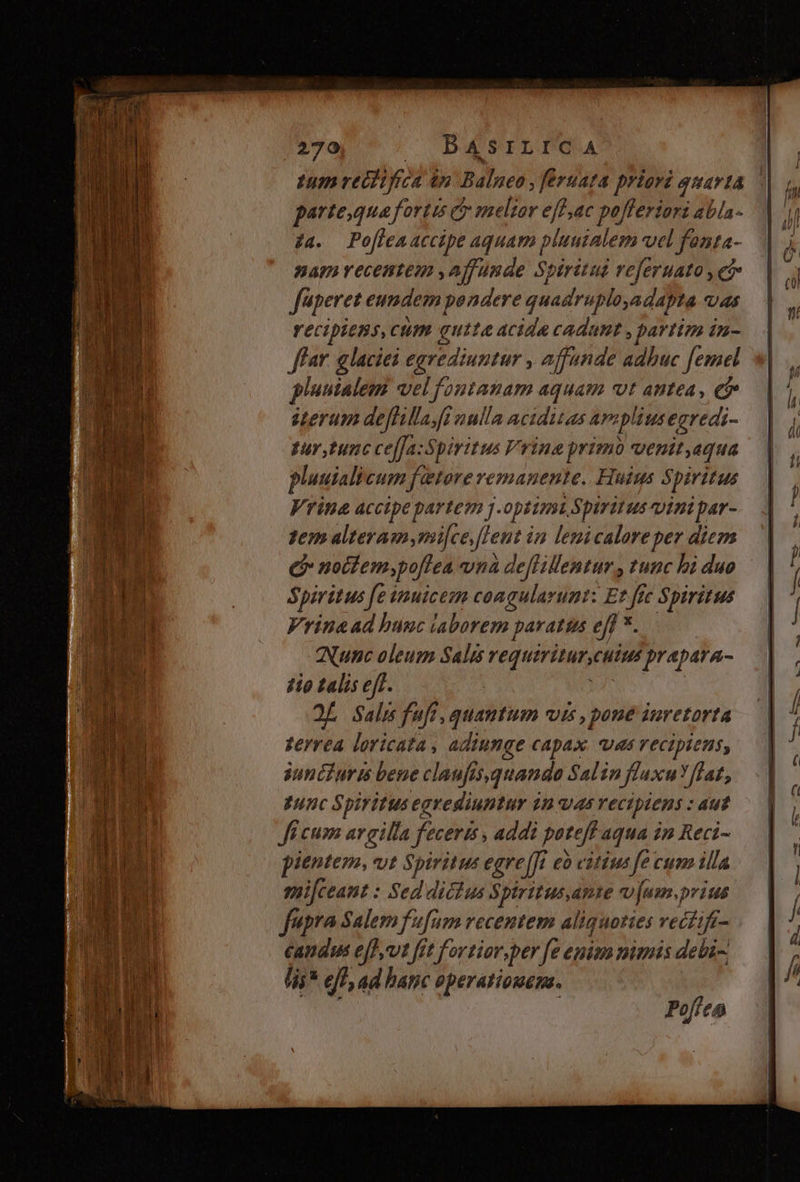 270 BASILICA
tum rectifica in Balneo, seruata priori quarta
parte, qua fortis & melior est, ac posteriori abla-
ta. Postea accipe aquam pluuialem vel fonta-
nam recentem, affunde Spiritui reseruato, &
superet eundem pondere quadruplo, adapta vas
recipiens, cùm guttæ acidæ cadunt, partim in-
star glaciei egrediuntur, affunde adhuc semel
pluuialem vel fontanam aquam vt antea, &
iterum destilla, si nulla aciditas amplius egredi-
tur, tunc cessa: Spiritus Vrinæ primò venit, aqua
pluuialis cum fœtore remanente. Huius Spiritus
Vrinæ accipe partem j. optimi Spiritus vini par-
tem alteram, misce, stent in leni calore per diem
& noctem, postea vnà destillentur, tunc hi duo
Spiritus se inuicem coagularunt: Et sic Spiritus
Vrinæ ad hunc laborem paratus est *.
Nunc oleum Salis requiritur, cuius præpara-
tio talis est.
℞ Salis fusi, quantum vis, pone in retorta
terrea loricata, adiunge capax vas recipiens,
iuncturis bene clausis, quando Sal in fluxu Y stat,
tunc Spiritus egrediuntur in vas recipiens: aut
si cum argilla feceris, addi potest aqua in Reci-
pientem, vt Spiritus egressi eò citius se cum illa
misceant: Sed dictus Spiritus, ante vsum, prius
supra Salem fusum recentem aliquoties rectifi-
candus est, vt sit fortior, per se enim nimis debi-
lis * est, ad hanc operationem.
Postea